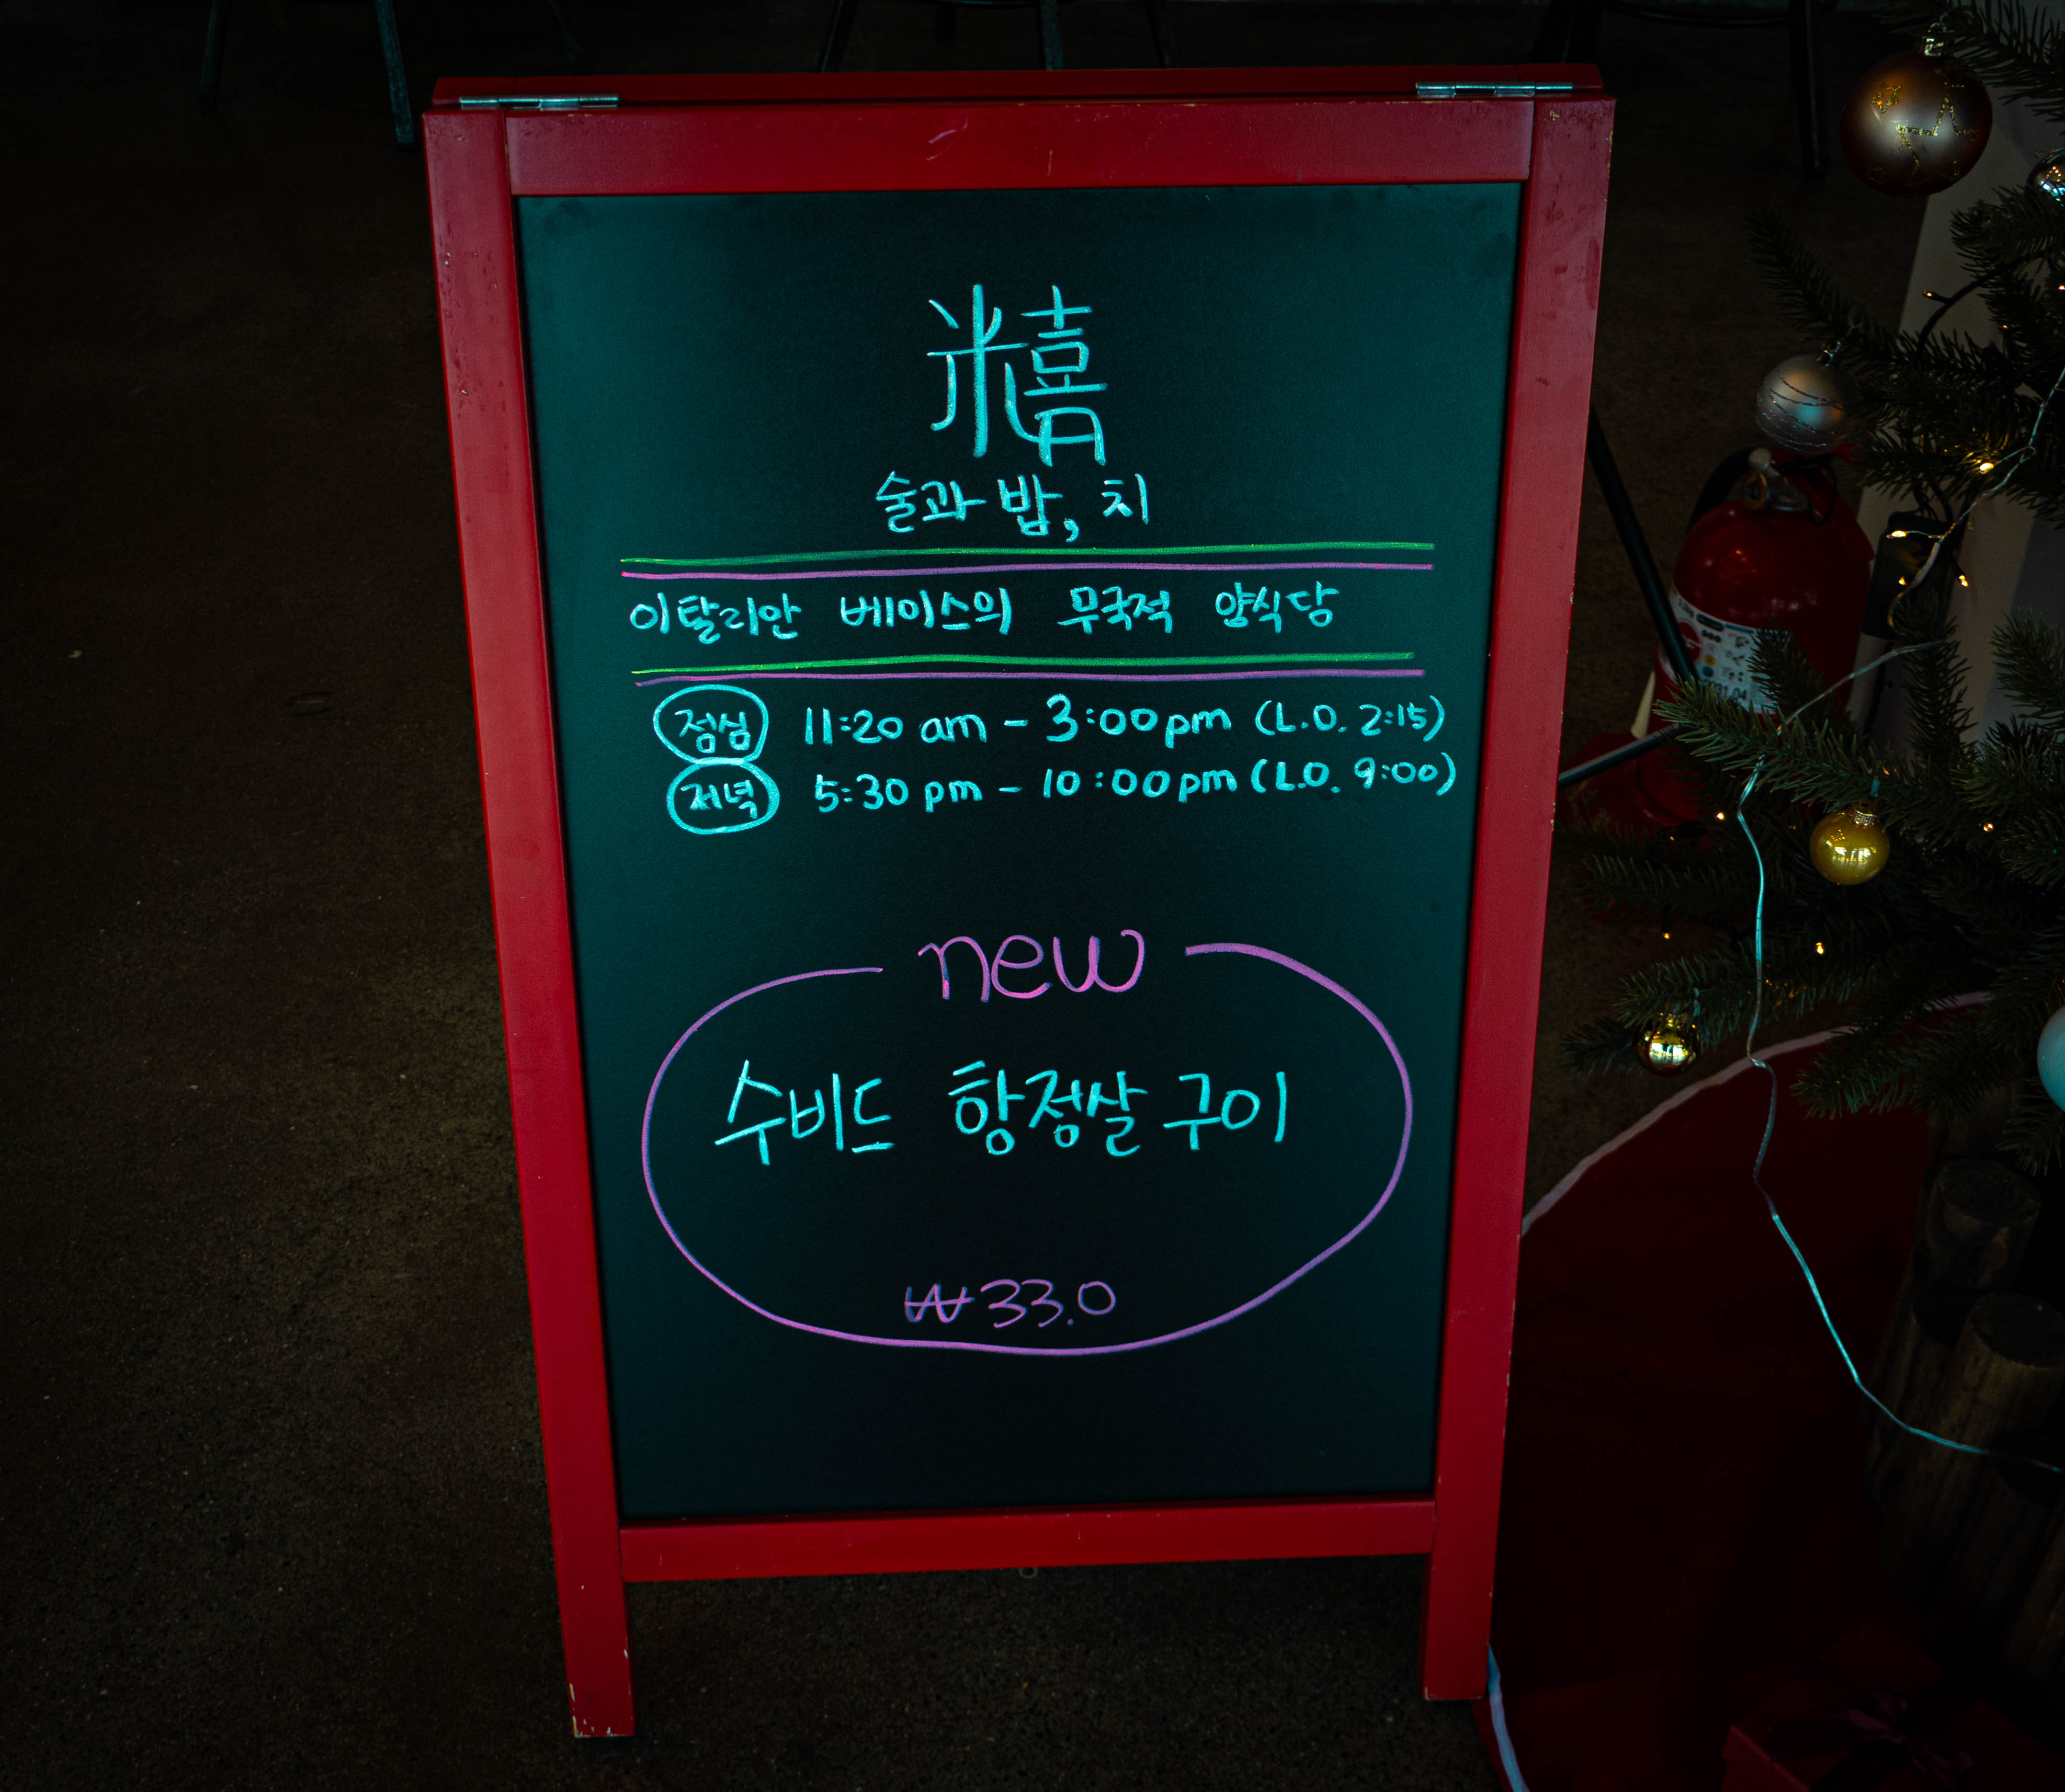 술과 밥, 치
이탈리안 베이스의 무국적 양식당
점심 11:20 am - 3:00 pm (L.O. 2:15)
저녁 5:30 pm - 10:00 pm (L.O. 9:00)
new
수비드 항정살 구이
₩33.0